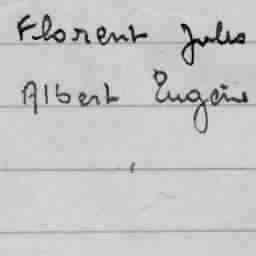 Florent Jules
Albert Eugène